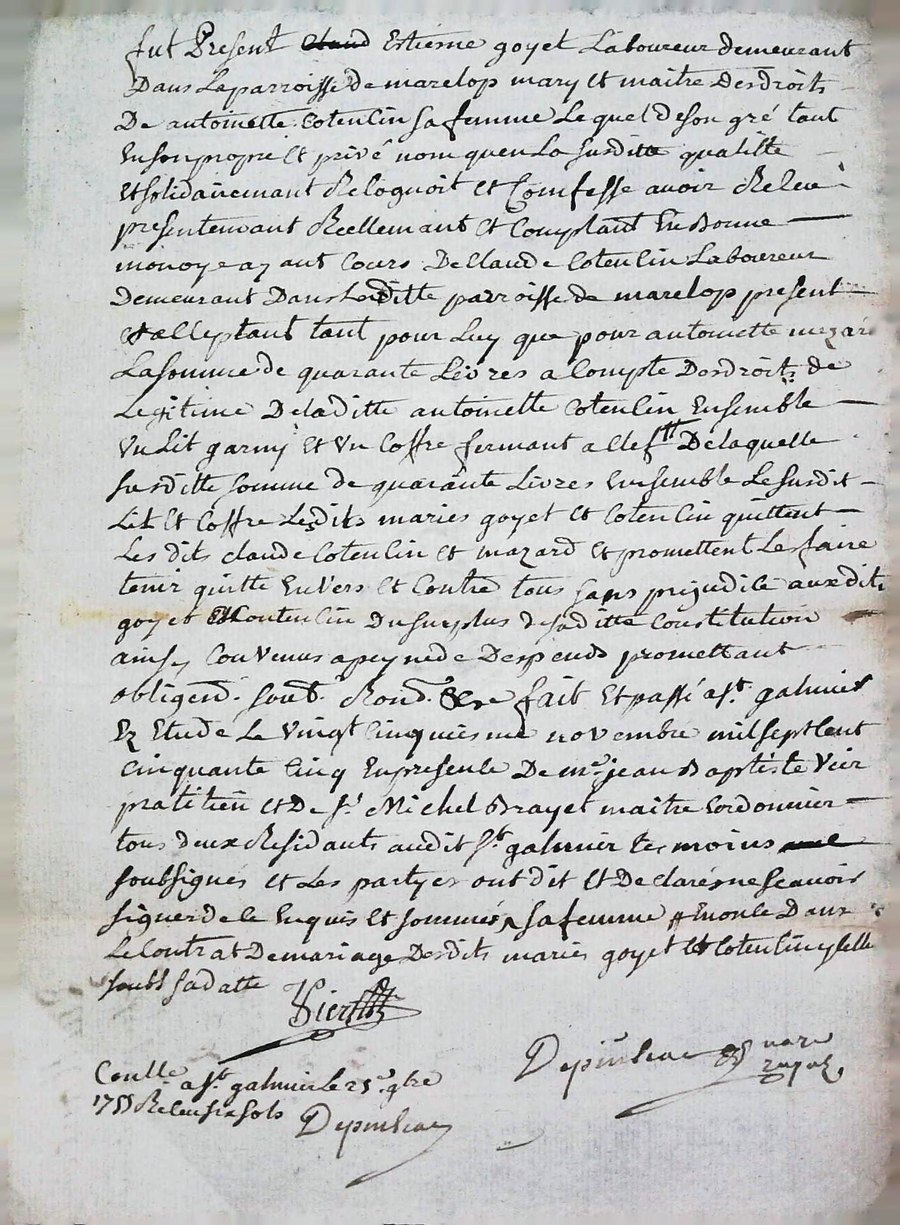 fut Present Estienne goyet Laboureur demeurant
Dans Laparroisse de marelop mary et maitre Desdroits
De antoinette Cotencin sa femme Lequel deson gré tant
Ensonpropre Et privé nom quen La susditte qualitte
Etsolidairemant Recognoit et Comfesse avoir Receu
presentemant Reellemant Et Comptant En Bonne
monoye ayant Cours De Claude Cotencin Laboureur
Demeurant Dans Laditte parroisse de marelop present
Et acceptant tant pour Luy que pour antoinette mazard
La somme de quarante Livres a Compte Desdroits de
Legitime De laditte antoinette Cotencin Ensemble
Un Lit garny Et Un Coffre fermant a clef De laquelle
susditte somme de quarante Livres Ensemble Le susdit
Lit Et Coffre Lesdits maries goyet Et Cotencin quittent
Les dits claude Cotencin Et mazard Et promettent Les faire
tenir quitte Envers Et Contre tous sans prejudice auxdits
goyet Et Cotencin Du surplus de saditte Constitution
ainsy Convenus apeyne de Despends promettant
obligend. soub. Rond. fait Et passé a st. galmier
Ez Etude Le Vingt Cinquiesme novembre mil sept Cent
Cinquante Cinq En presence De me. jean Baptiste Vier
pratitien et De sr. Michel Brayet maitre Cordonnier
tous deux Residants audit st. galmier tesmoins
soubsignés et Les partyes ont dit Et Declarés ne scavoir
signer de ce Enquis Et sommés sa femme Enoncé Dans
Le Contrat De mariage Desdits maries goyet Et Cotencin
soubs sa datte
Vier
Depinhac
Conllé a st. galmier le 25e. 9bre
1755 Receu six sols
Depinhac